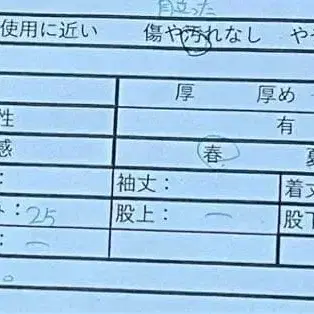 目立った
使用に近い 傷や汚れなし や
厚 厚め
性 有
感 春 夏
: 袖丈: 着丈
: 25 股上: ー 股下
: ー
。